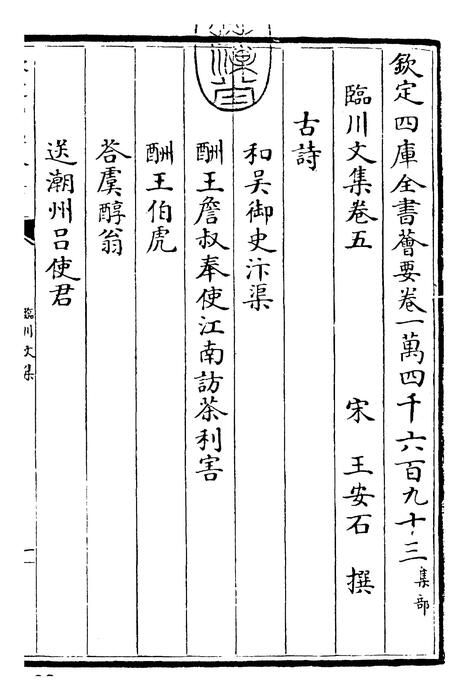 欽定四庫全書薈要卷一萬四千六百九十三集部
臨川文集卷五 宋 王安石 撰
古詩
和吳御史汴渠
酬王詹叔奉使江南訪茶利害
酬王伯虎
荅虞醇翁
送潮州吕使君
臨川文集
一